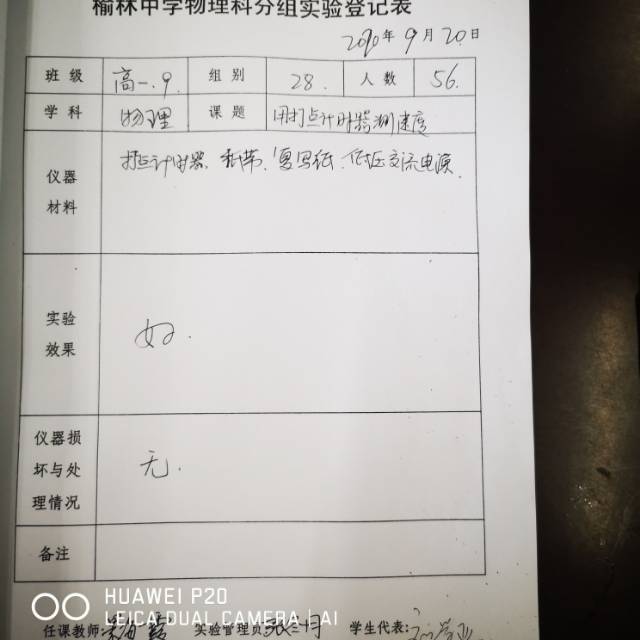 榆林中学物理科分组实验登记表
年9月20日
班级 高一.9. 组别 28. 人数 56.
学科 物理 课题 用打点计时器测速度
仪器
材料
打点计时器、纸带、复写纸、低压交流电源.
实验
效果
好.
仪器损
坏与处
理情况
无.
备注
任课教师: 实验管理员: 学生代表:
HUAWEI P20
LEICA DUAL CAMERA | AI